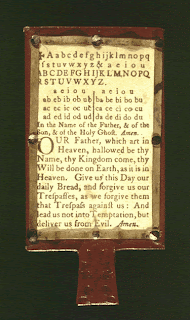 Aabcdefghijklmnopq
rſstuvwxyz& aeiou
ABCDEFGHIJKLMNOPQ
RSTUVWXYZ.
aeiou | aeiou
ab eb ib ob ub | ba be bi bo bu
ac ec ic oc uc | ca ce ci co cu
ad ed id od ud | da de di do du
In the Name of the Father, & of the
Son, & of the Holy Ghoſt. Amen.
OUR Father, which art in
Heaven, hallowed be thy
Name, thy Kingdom come, thy
Will be done on Earth, as it is in
Heaven. Give us this Day our
daily Bread, and forgive us our
Treſpaſſes, as we forgive them
that Treſpaſs againſt us: And
lead us not into Temptation, but
deliver us from Evil. Amen.